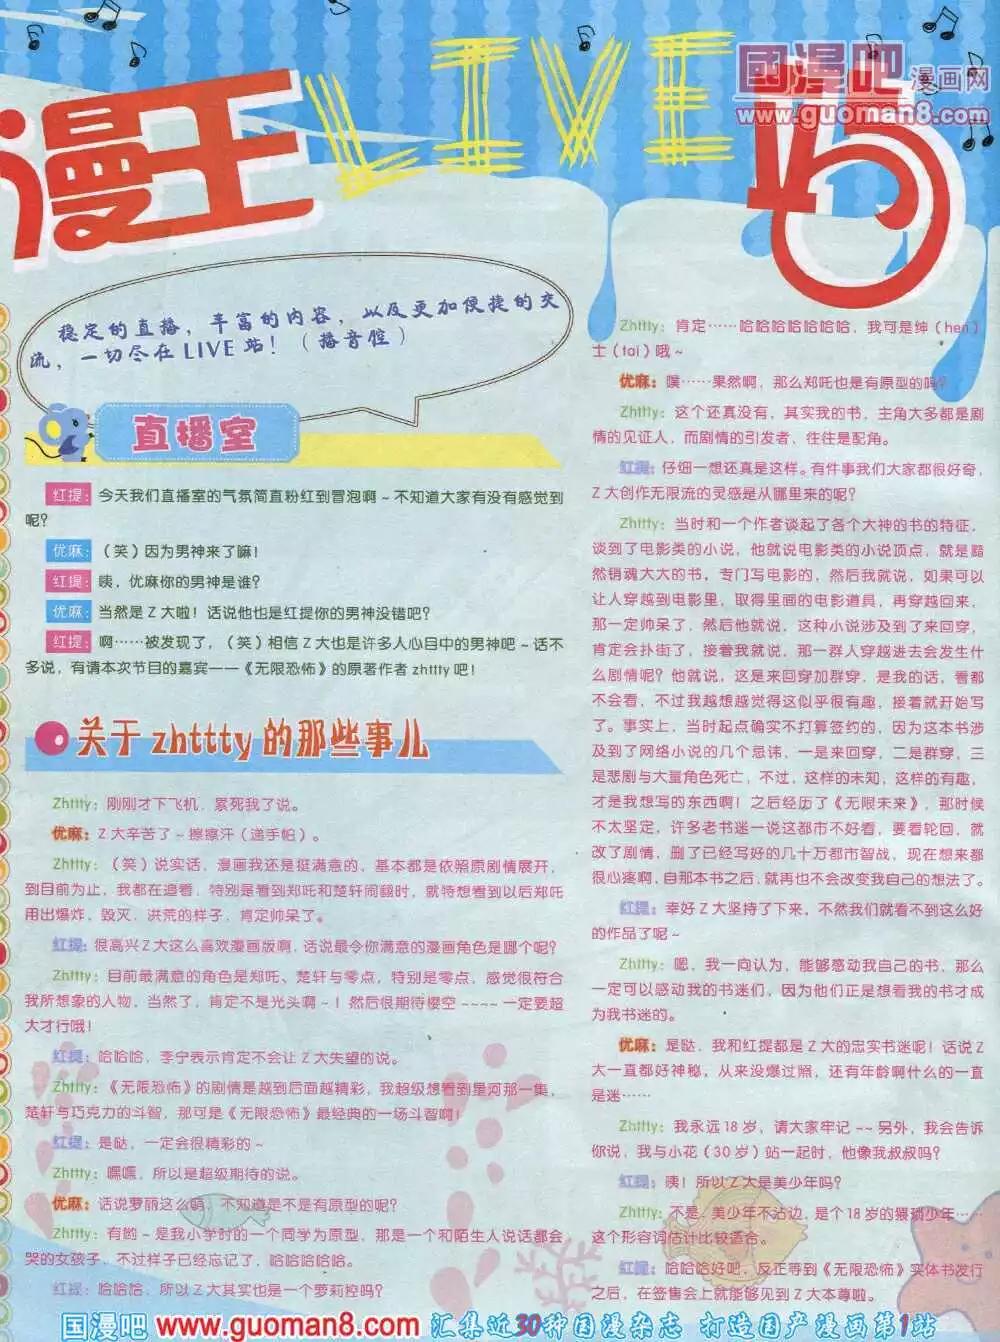 漫王 LIVE 站
國漫吧漫画网
www.guoman8.com
稳定的直播，丰富的内容，以及更加便捷的交
流，一切尽在 LIVE 站！（播音腔）
直播室
红提：今天我们直播室的气氛简直粉红到冒泡啊~不知道大家有没有感觉到
呢？
优麻：（笑）因为男神来了嘛！
红提：咦，优麻你的男神是谁？
优麻：当然是 Z 大啦！话说他也是红提你的男神没错吧？
红提：啊……被发现了，（笑）相信 Z 大也是许多人心目中的男神吧~话不
多说，有请本次节目的嘉宾——《无限恐怖》的原著作者 zhttty 吧！
关于 zhttty 的那些事儿
Zhttty：刚刚才下飞机，累死我了说。
优麻：Z 大辛苦了~擦擦汗（递手帕）。
Zhttty：（笑）说实话，漫画我还是挺满意的，基本都是依照原剧情展开，
到目前为止，我都在追看，特别是看到郑吒和楚轩闹翻时，就特想看到以后郑吒
用出爆炸，毁灭，洪荒的样子，肯定帅呆了。
红提：很高兴 Z 大这么喜欢漫画版啊，话说最令你满意的漫画角色是哪个呢？
Zhttty：目前最满意的角色是郑吒、楚轩与零点，特别是零点，感觉很符合
我所想象的人物，当然了，肯定不是光头啊~！然后很期待樱空~~~~一定要超
大才行哦！
红提：哈哈哈，李宁表示肯定不会让 Z 大失望的说。
Zhttty：《无限恐怖》的剧情是越到后面越精彩，我超级想看到星河那一集，
楚轩与巧克力的斗智，那可是《无限恐怖》最经典的一场斗智啊！
红提：是哒，一定会很精彩的~
Zhttty：嘿嘿，所以是超级期待的说。
优麻：话说萝丽这么萌，不知道是不是有原型的呢？
Zhttty：有哟~是我小学时的一个同学为原型，那是一个和陌生人说话都会
哭的女孩子，不过样子已经忘记了，哈哈哈哈哈。
红提：哈哈哈，所以 Z 大其实也是一个萝莉控吗？
Zhttty：肯定……哈哈哈哈哈哈哈，我可是绅（hen）
士（tai）哦~
优麻：噗……果然啊，那么郑吒也是有原型的吗？
Zhttty：这个还真没有，其实我的书，主角大多都是剧
情的见证人，而剧情的引发者，往往是配角。
红提：仔细一想还真是这样。有件事我们大家都很好奇，
Z 大创作无限流的灵感是从哪里来的呢？
Zhttty：当时和一个作者谈起了各个大神的书的特征，
谈到了电影类的小说，他就说电影类的小说顶点，就是黯
然销魂大大的书，专门写电影的，然后我就说，如果可以
让人穿越到电影里，取得里面的电影道具，再穿越回来，
那一定帅呆了，然后他就说，这种小说涉及到了来回穿，
肯定会扑街了，接着我就说，那一群人穿越进去会发生什
么剧情呢？他就说，这是来回穿加群穿，是我的话，看都
不会看，不过我越想越觉得这似乎很有趣，接着就开始写
了。事实上，当时起点确实不打算签约的，因为这本书涉
及到了网络小说的几个忌讳，一是来回穿，二是群穿，三
是悲剧与大量角色死亡，不过，这样的未知，这样的有趣，
才是我想写的东西啊！之后经历了《无限未来》，那时候
不太坚定，许多老书迷一说这都市不好看，要看轮回，就
改了剧情，删了已经写好的几十万都市智战，现在想来都
很心疼啊，自那本书之后，就再也不会改变我自己的想法了。
红提：幸好 Z 大坚持了下来，不然我们就看不到这么好
的作品了呢~
Zhttty：嗯，我一向认为，能够感动我自己的书，那么
一定可以感动我的书迷们，因为他们正是想看我的书才成
为我书迷的。
优麻：是哒，我和红提都是 Z 大的忠实书迷呢！话说 Z
大一直都好神秘，从来没爆过照，还有年龄啊什么的一直
是迷……
Zhttty：我永远 18 岁，请大家牢记~~另外，我会告诉
你说，我与小花（30 岁）站一起时，他像我叔叔吗？
红提：咦！所以 Z 大是美少年吗？
Zhttty：不是，美少年不沾边，是个 18 岁的猥琐少年……
这个形容词估计比较适合。
红提：哈哈哈好吧，反正等到《无限恐怖》实体书发行
之后，在签售会上就能够见到 Z 大本尊啦。
国漫吧 www.guoman8.com 汇集近30种国漫杂志 打造国产漫画第1站